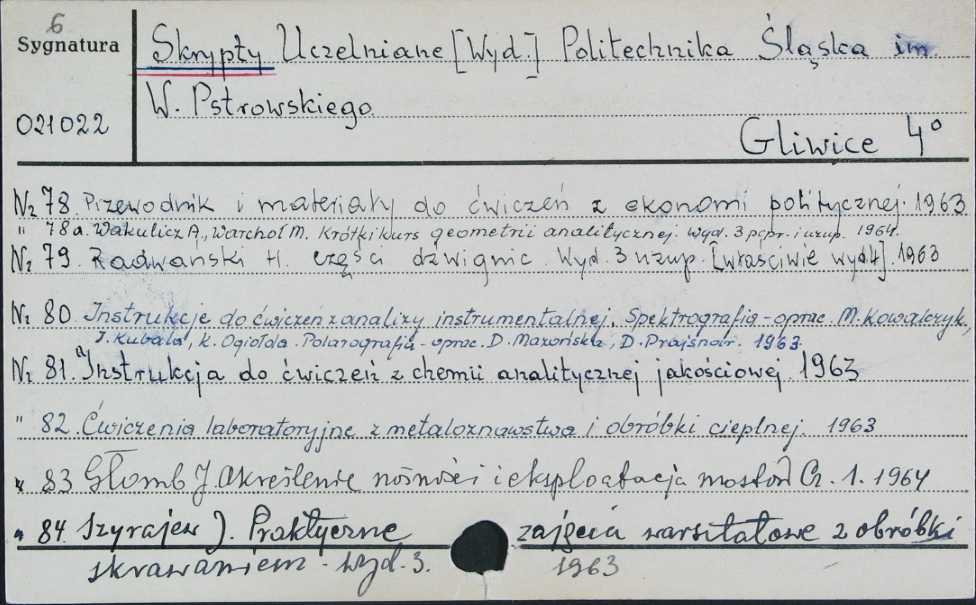 6
Sygnatura
021022
Skrypty Uczelniane [Wyd.] Politechnika Śląska im.
W. Pstrowskiego
Gliwice 4°
Nr 78. Przewodnik i materiały do ćwiczeń z ekonomi politycznej. 1963
" 78a. Wakulicz A., Warchoł M. Krótki kurs geometrii analitycznej. Wyd. 3 popr. i uzup. 1964.
Nr 79. Radwański H. Części dźwignic. Wyd. 3 uzup. [właściwie wyd4]. 1963
Nr 80 Instrukcje do ćwiczeń z analizy instrumentalnej. Spektrografia - oprac. M. Kowalczyk,
J. Kubala, K. Ogiołda. Polarografia - oprac. D. Mazońska, D. Prajsnar. 1963.
Nr 81. Instrukcja do ćwiczeń z chemii analitycznej jakościowej. 1963
" 82. Ćwiczenia laboratoryjne z metaloznawstwa i obróbki cieplnej. 1963
" 83 Głomb J. Określenie nośności i eksploatacja mostów Cz. 1. 1964
" 84. Szyrajew J. Praktyczne zajęcia warsztatowe z obróbki
skrawaniem. Wyd. 3. 1963